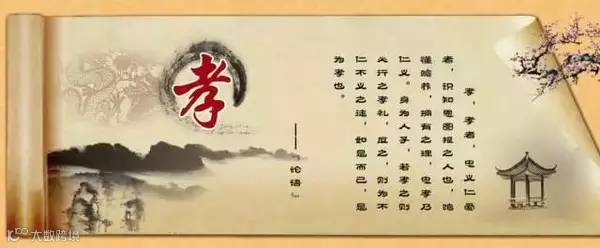 孝
孝,孝者,忠义仁爱
者,识知恩图报之人也,
懂赡养,拥有之理,忠孝乃
仁义。身为人子,若孝之则
必行之孝礼,反之,则为不
仁不义之徒,如是而已,是
为孝也。
——《论语》
大数跨境